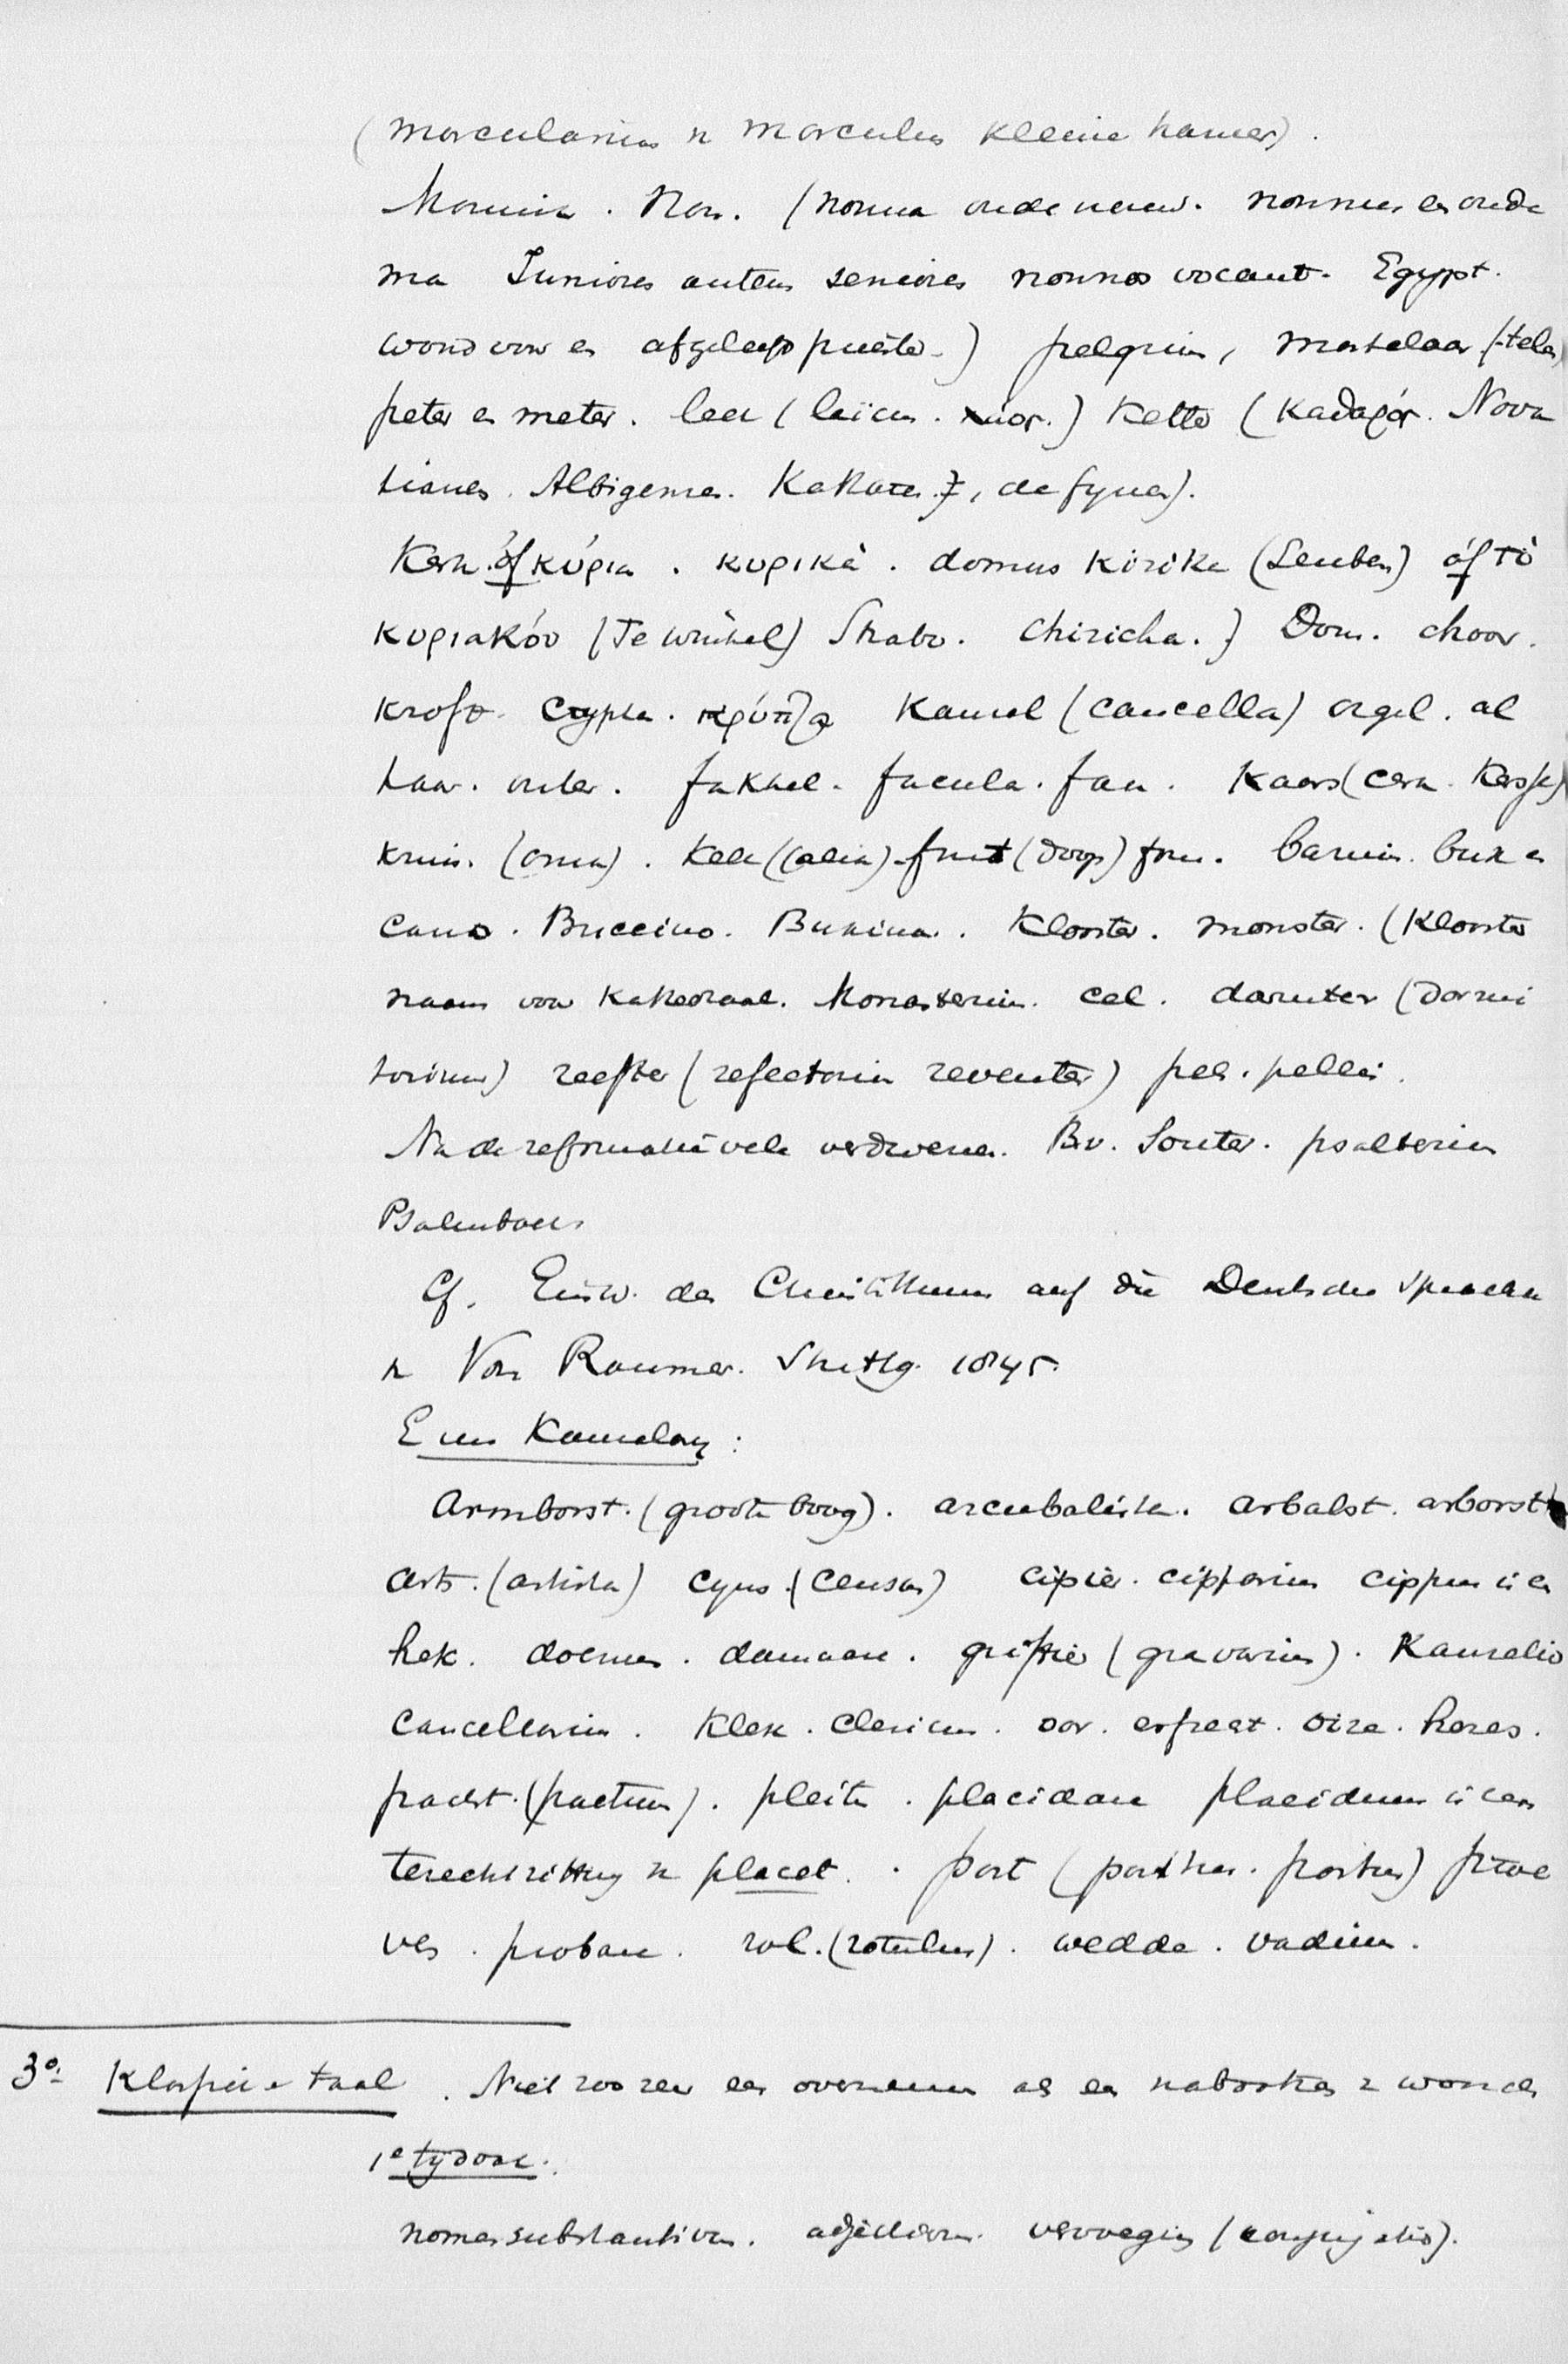 (marcularius v marculus kleine hamer).
Monnik. Non. (nonna oude vrouw. nonnus een oude
ma Juniores autem seniores nonnos vocant. Egypt.
woord voor een afgeleefd priester.) pelgrim, martelaar (-telen)
peter en meter. leek (laïcus. λαός.) Ketter (καθαρός. Nova
tianen. Albigenses. Katharen, de fynen).
Kerk óf κύρια. κυρικὰ. domus kirike (Leuben) óf τὸ
κυριακόν (Te Winkel) Strabo. Chiricha.) Dom. choor.
Kroft. Crypta. κρύπτα Kansel (cancella) orgel. al
taar. outer. fakkel. facula. fax. Kaars (cera. Kersje)
kruis. (crux). Kelk (calix) funt (doop) fons. bazuin. bux en
cano. Buccino. Buxina. Klooster. monster. (Klooster
naam voor Kathedraal. Monasterium. cel. darmter (dormi
torium) reefter (refectorium reventer) pels. pellis.
Na de reformatie vele verdwenen. Bv. Souter. psalterium
Psalmboek
Cf. Einw. des Christenthums auf die Deutsche Sprache
v Von Raumer. Stuttg. 1845.
E uns Kanselary:
Armborst. (groote boog). arcubalista. arbalst. arborst
Arts. (artista) cyns. (census) cipier. cipparius cippus is een
hek. doemen. damnare. griffier (gravarius). Kanselier
Cancellarius. Klerk. clericus. oor. erfrecht. oire. heres.
pacht. (pactum). pleiten. placidare placidum is een
terechtzitting v placet. port (porthus. portus) proe
ven. probare. rol. (rotulus). wedde. vadium.
3º. Klassieke taal. Niet zoo zeer een overnemen als een nabootsen v woorden
1º tydvak.
nomen substantivum. adjectivum. vervoeging (conjugatio).